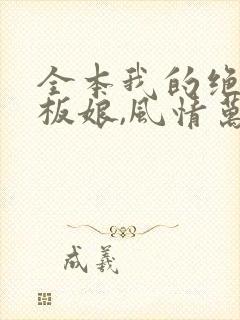 全本我的绝
板娘,风情萬
成羲